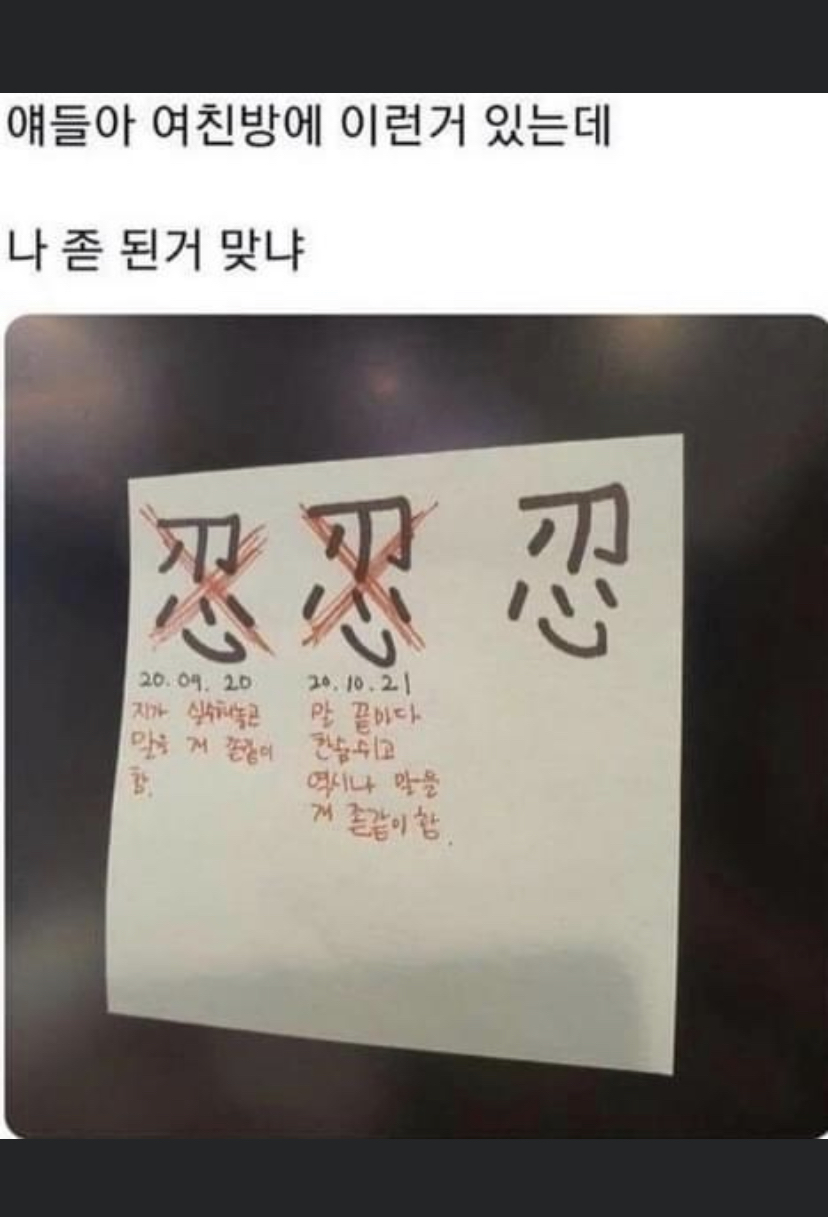 얘들아 여친방에 이런거 있는데
나 좓 된거 맞냐
忍 忍 忍
20.09.20
지가 실수해놓고
말을 개 좆같이
함.
20.10.21
말 끝마다
한숨쉬고
역시나 말을
개 좆같이 함.